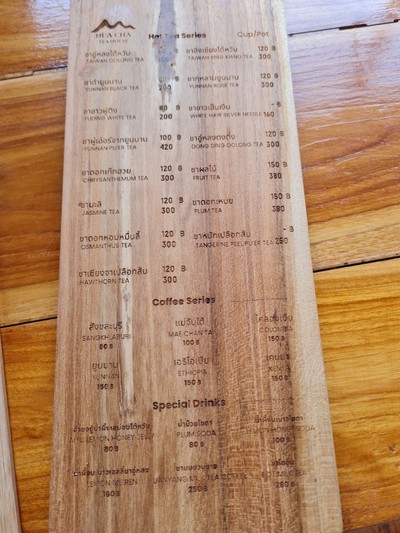 HUA CHA
TEA HOUSE
Hot Tea Series
Cup/Pot
ชาอู่หลงไต้หวัน
TAIWAN OOLONG TEA
300
120 ฿
TAIWAN TING XIANG TEA
300
ชาดำยูนนาน
YUNNAN BLACK TEA
ชากุหลาบยูนนาน 120 ฿
YUNNAN ROSE TEA 300
ชาขาวฝูติ่ง
FUDING WHITE TEA 200
ชาขาวเข็มเงิน - ฿
WHITE HAIR SILVER NEEDLE 160
ชาผู่เอ๋อร์จากยูนนาน 100 ฿
YUNNAN PU'ER TEA 420
ชาอู่หลงตงติ่ง 120 ฿
DONG DING OOLONG TEA 300
ชาดอกเก๊กฮวย 120 ฿
CHRYSANTHEMUM TEA 300
ชาผลไม้ 150 ฿
FRUIT TEA 380
ชามะลิ 120 ฿
JASMINE TEA 300
ชาดอกเหมย 150 ฿
PLUM TEA 380
ชาดอกหอมหมื่นลี้ 120 ฿
OSMANTHUS TEA 300
ชาหมักเปลือกส้ม - ฿
TANGERINE PEEL PU'ER TEA 250
ชาเซียงจาเปลือกส้ม 120 ฿
HAWTHORN TEA 300
Coffee Series
สังขละบุรี
SANGKHLABURI
80 ฿
แม่จันใต้
MAE CHAN TAI
100 ฿
โคลอมเบีย
COLOMBIA
150 ฿
ยูนนาน
YUNNAN
150 ฿
เอธิโอเปีย
ETHIOPIA
150 ฿
เคนย่า
KENYA
150 ฿
Special Drinks
LEMON HONEY JELLY
80 ฿
น้ำบ๊วยโซดา
PLUM SODA
80 ฿
HONEY SODA
100 ฿
250 ฿
MILK TEA
280 ฿